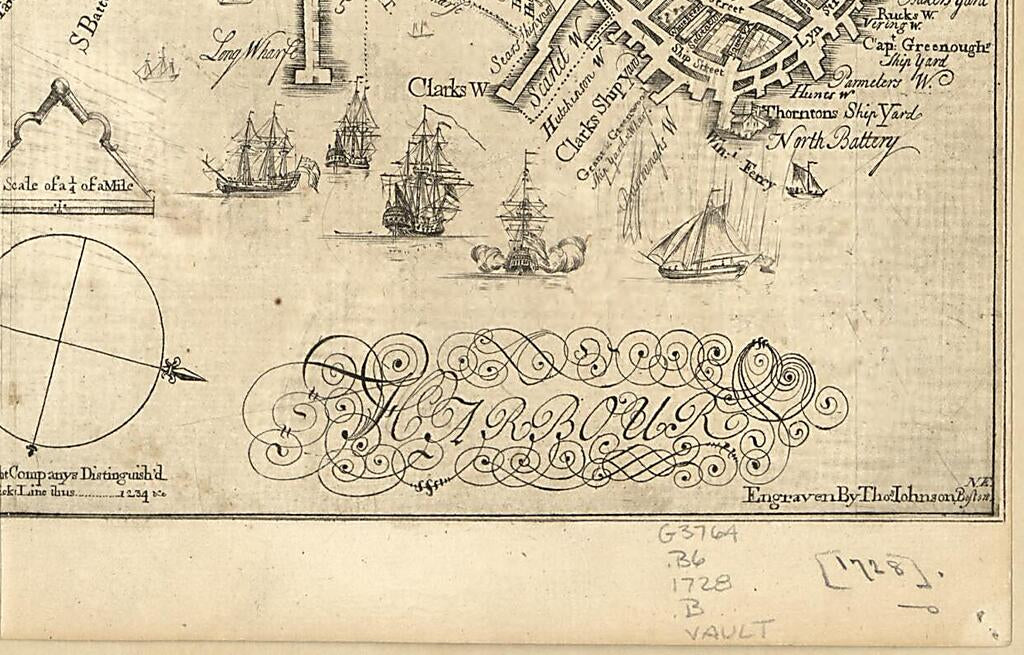 S Batt
Long Wharfe
5
Clarks W
Sears Ship yard
Scarlet W
Hutchinson W
Clarks Ship Yard
Ship Yard
Street
Ship Street
Lyn
Rucks W.
Vering W.
Capt. Greenoughs
Ship Yard
Parmelers W.
Hunts W
Thorntons Ship Yard
North Battery
Win
Ferry
Scale of a ¼ of a Mile
HARBOUR
Companys Distinguish'd
Line thus.........1 2 3 4 &c
N.E.
Engraven By Thos. Johnson, Boston
G3764
.B6
1728
.B
VAULT
[1728].